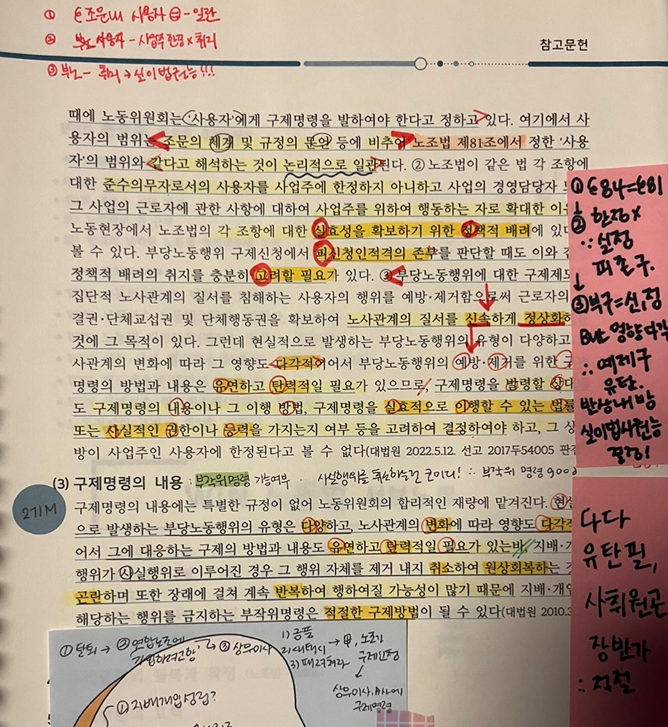 ① 조문내 사용자 ㊀ - 일관
② 부노사용자 - 사업주한정x 취지
③ 부노 - 취지 → 실이법권능!!!
참고문헌
때에 노동위원회는 '사용자'에게 구제명령을 발하여야 한다고 정하고 있다. 여기에서 사
용자의 범위는 조문의 체계 및 규정의 문언 등에 비추어 노조법 제81조에서 정한 '사용
자'의 범위와 같다고 해석하는 것이 논리적으로 일관된다. ② 노조법이 같은 법 각 조항에
대한 준수의무자로서의 사용자를 사업주에 한정하지 아니하고 사업의 경영담당자
그 사업의 근로자에 관한 사항에 대하여 사업주를 위하여 행동하는 자로 확대한 이
노동현장에서 노조법의 각 조항에 대한 실효성을 확보하기 위한 정책적 배려에 있다
볼 수 있다. 부당노동행위 구제신청에서 피신청인적격의 존부를 판단할 때도 이와
정책적 배려의 취지를 충분히 고려할 필요가 있다. ③ 부당노동행위에 대한 구제제
집단적 노사관계의 질서를 침해하는 사용자의 행위를 예방·제거함으로써 근로자의
결권·단체교섭권 및 단체행동권을 확보하여 노사관계의 질서를 신속하게 정상화
것에 그 목적이 있다. 그런데 현실적으로 발생하는 부당노동행위의 유형이 다양하고
사관계의 변화에 따라 그 영향도 다각적이어서 부당노동행위의 예방·제거를 위한 구
명령의 방법과 내용은 유연하고 탄력적일 필요가 있으므로, 구제명령을 발령할 상대
도 구제명령의 내용이나 그 이행 방법, 구제명령을 실효적으로 이행할 수 있는 법률
또는 사실적인 권한이나 능력을 가지는지 여부 등을 고려하여 결정하여야 하고, 그 상
방이 사업주인 사용자에 한정된다고 볼 수 없다(대법원 2022.5.12. 선고 2017두54005 판
(3) 구제명령의 내용 : 부작위명령 가능여부
2기M
구제명령의 내용에는 특별한 규정이 없어 노동위원회의 합리적인 재량에 맡겨진다. 현실
으로 발생하는 부당노동행위의 유형은 다양하고, 노사관계의 변화에 따라 영향도 다각적
어서 그에 대응하는 구제의 방법과 내용도 유연하고 탄력적일 필요가 있는바, 지배·개
행위가 사실행위로 이루어진 경우 그 행위 자체를 제거 내지 취소하여 원상회복하는
곤란하며 또한 장래에 걸쳐 계속 반복하여 행하여질 가능성이 많기 때문에 지배·개입
해당하는 행위를 금지하는 부작위명령은 적절한 구제방법이 될 수 있다(대법원 2010.
① 탈퇴 → ② 연합노조에 가입하려고함 → ③ 상무이사
1) 금품
3) 때려쳐라
구제신청
상무이사, M에
구제명령
① 지배개입성립?
① §84=§81
↓
② 한정x
∵ 실정
피존구.
↓
③ 부구=신정
But 영향다각
∴ 예제구
유탄.
반상내방
실이법사권능
결정!
다다
유탄필,
사취원곤
장반가
∴ 적절